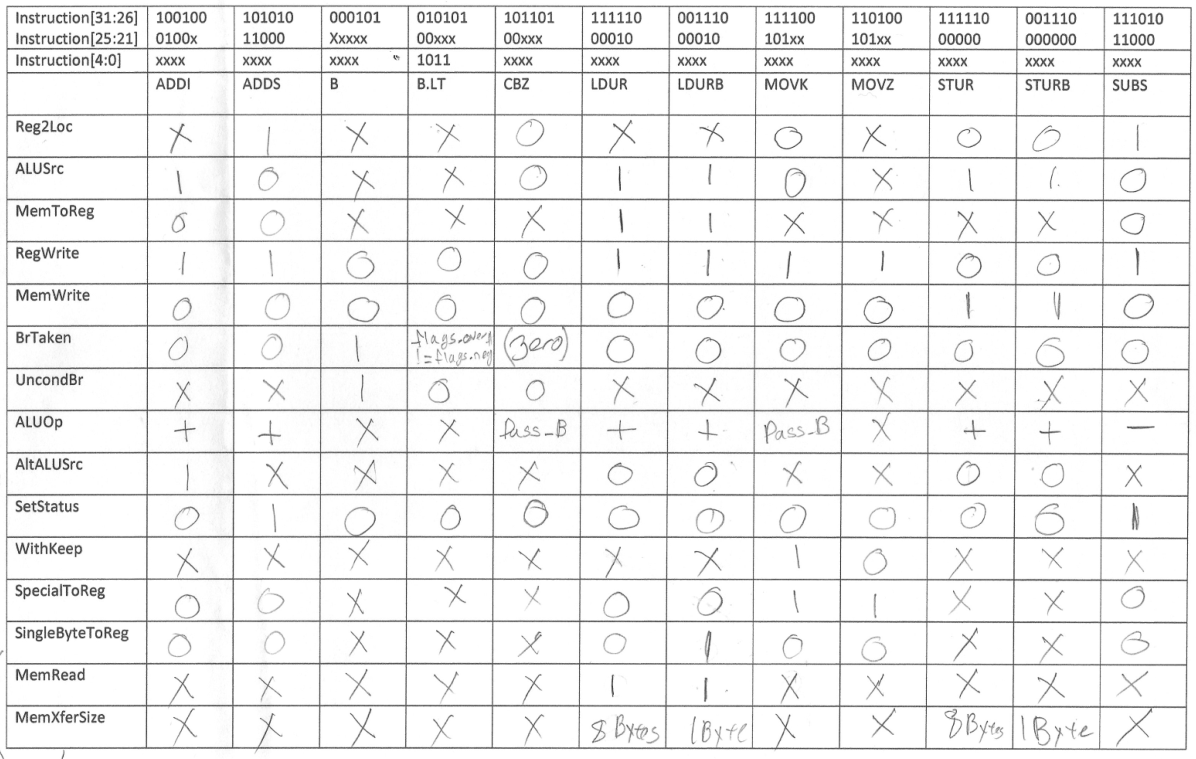 Instruction[31:26] 100100 101010 000101 010101 101101 111110 001110 111100 110100 111110 001110 111010
Instruction[25:21] 0100x 11000 Xxxxx 00xxx 00xxx 00010 00010 101xx 101xx 00000 000000 11000
Instruction[4:0] xxxx xxxx xxxx 1011 xxxx xxxx xxxx xxxx xxxx xxxx xxxx xxxx
ADDI ADDS B B.LT CBZ LDUR LDURB MOVK MOVZ STUR STURB SUBS
Reg2Loc X 1 X X 0 X X 0 X 0 0 1
ALUSrc 1 0 X X 0 1 1 0 X 1 1 0
MemToReg 0 0 X X X 1 1 X X X X 0
RegWrite 1 1 0 0 0 1 1 1 1 0 0 1
MemWrite 0 0 0 0 0 0 0 0 0 1 1 0
BrTaken 0 0 1 flags.overf (zero) 0 0 0 0 0 0 0
!=flags.neg
UncondBr X X 1 0 0 X X X X X X X
ALUOp + + X X Pass_B + + Pass_B X + + -
AltALUSrc 1 X X X X 0 0 X X 0 0 X
SetStatus 0 1 0 0 0 0 0 0 0 0 0 1
WithKeep X X X X X X X 1 0 X X X
SpecialToReg 0 0 X X X 0 0 1 1 X X 0
SingleByteToReg 0 0 X X X 0 1 0 0 X X 0
MemRead X X X X X 1 1 X X X X X
MemXferSize X X X X X 8 Bytes 1Byte X X 8 Bytes 1Byte X